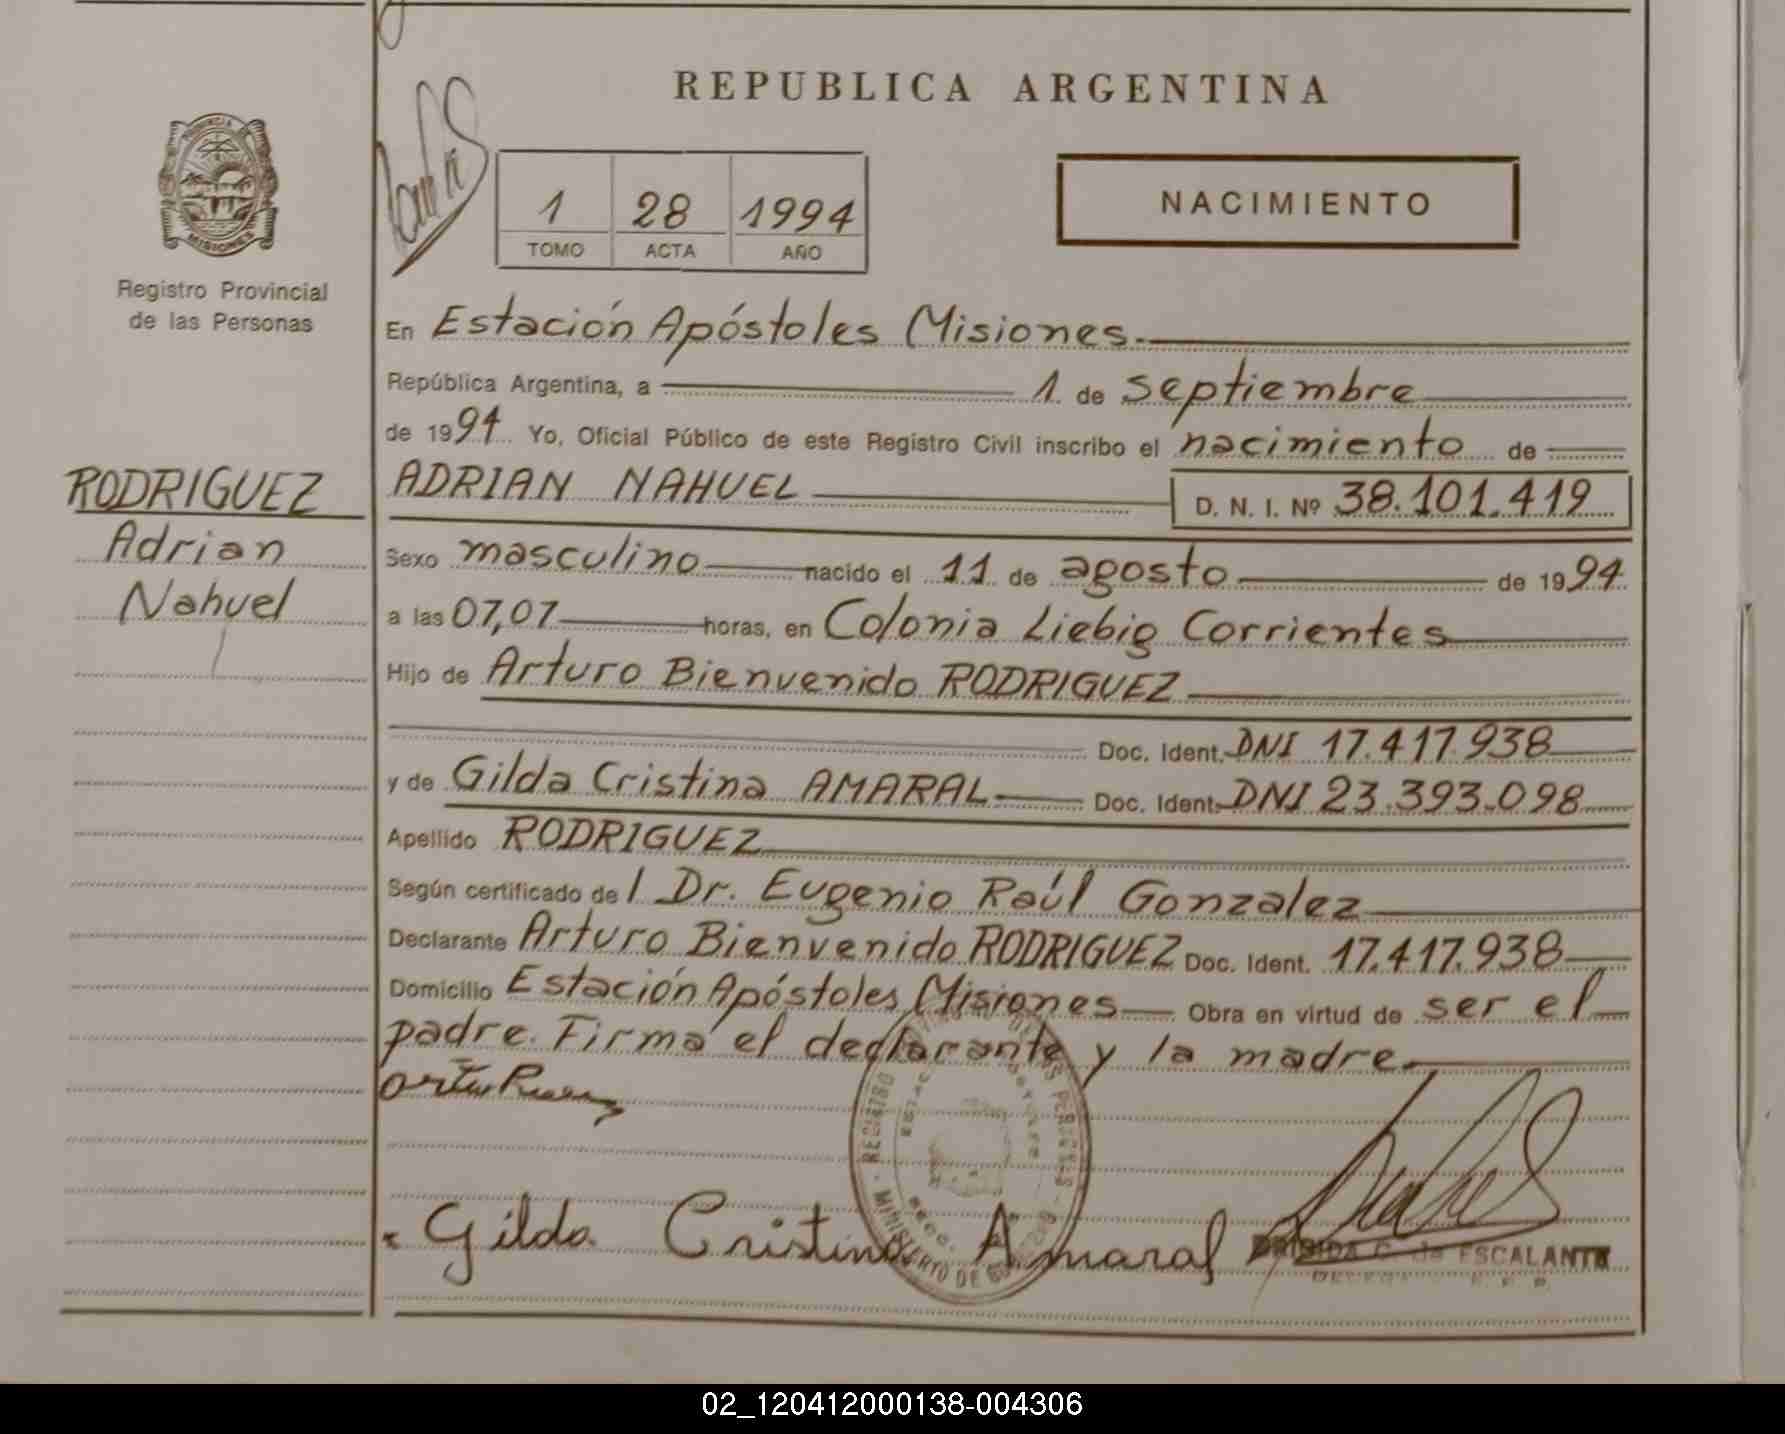 REPUBLICA ARGENTINA
PROVINCIA DE
MISIONES
Registro Provincial
de las Personas
1 28 1994
TOMO ACTA AÑO
NACIMIENTO
En Estación Apóstoles Misiones.
República Argentina, a 1 de septiembre
de 1994 Yo, Oficial Público de este Registro Civil inscribo el nacimiento de
RODRIGUEZ
Adrian
Nahuel
ADRIAN NAHUEL D. N. I. Nº 38.101.419
Sexo masculino nacido el 11 de agosto de 1994
a las 07,07 horas, en Colonia Liebig Corrientes
Hijo de Arturo Bienvenido RODRIGUEZ
Doc. Ident. DNI 17.417.938
y de Gilda Cristina AMARAL Doc. Ident. DNI 23.393.098
Apellido RODRIGUEZ
Según certificado del Dr. Eugenio Raúl Gonzalez
Declarante Arturo Bienvenido RODRIGUEZ Doc. Ident. 17.417.938
Domicilio Estación Apóstoles Misiones Obra en virtud de ser el
padre. Firma el declarante y la madre.
REGISTRO DE LAS PERSONAS
MINISTERIO DE
Gilda Cristina Amaral
BRIGIDA C. de ESCALANTE
02_120412000138-004306